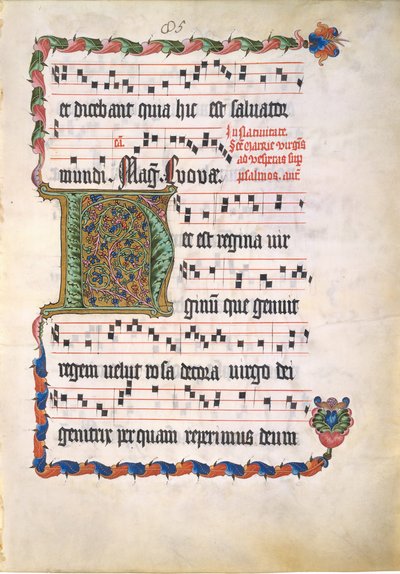 et dicebant quia hic est saluator
In natiuitate.
Sce marie virgis
ad vesperas sup
psalmos. ant
mundi. Mag. Euouae.
Hec est regina uir
ginu que genuit
regem uelut rosa decora virgo dei
genitrix per quam reperimus deum